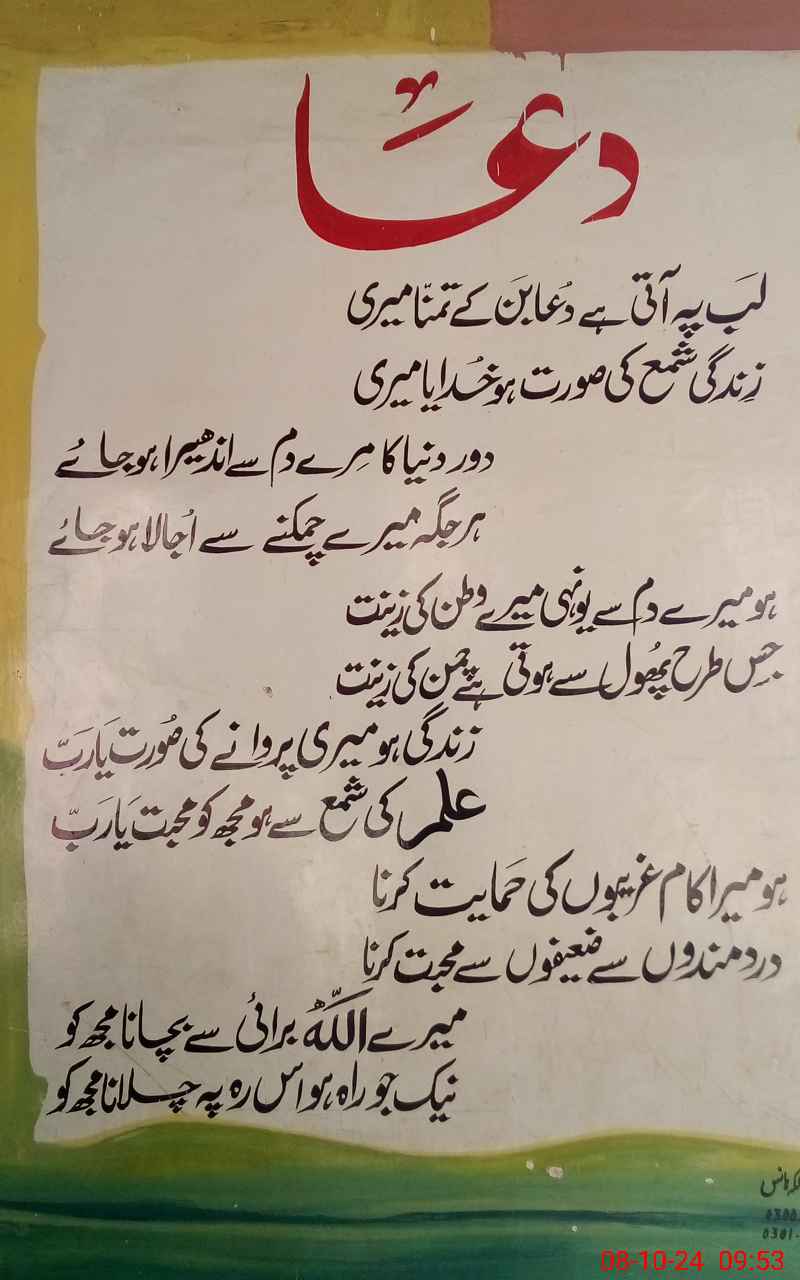 دعا
لَب پہ آتی ہے دُعا بَن کے تمنّا میری
زِندگی شمع کی صورت ہو خُدایا میری
دور دنیا کا مِرے دم سے اندھیرا ہو جائے
ہر جگہ میرے چمکنے سے اُجالا ہو جائے
ہو میرے دم سے یونہی میرے وطن کی زینت
جِس طرح پھُول سے ہوتی ہے چمن کی زینت
زندگی ہو میری پروانے کی صُورت یَارَبّ
علم کی شمع سے ہو مجھ کو محبت یَارَبّ
ہو میرا کام غریبوں کی حَمایت کرنا
دردمندوں سے ضعیفوں سے محبت کرنا
میرے اللّٰہ برائی سے بچانا مجھ کو
نیک جو راہ ہو اس رہ پہ چلانا مجھ کو
0300
0301-
08-10-24 09:53